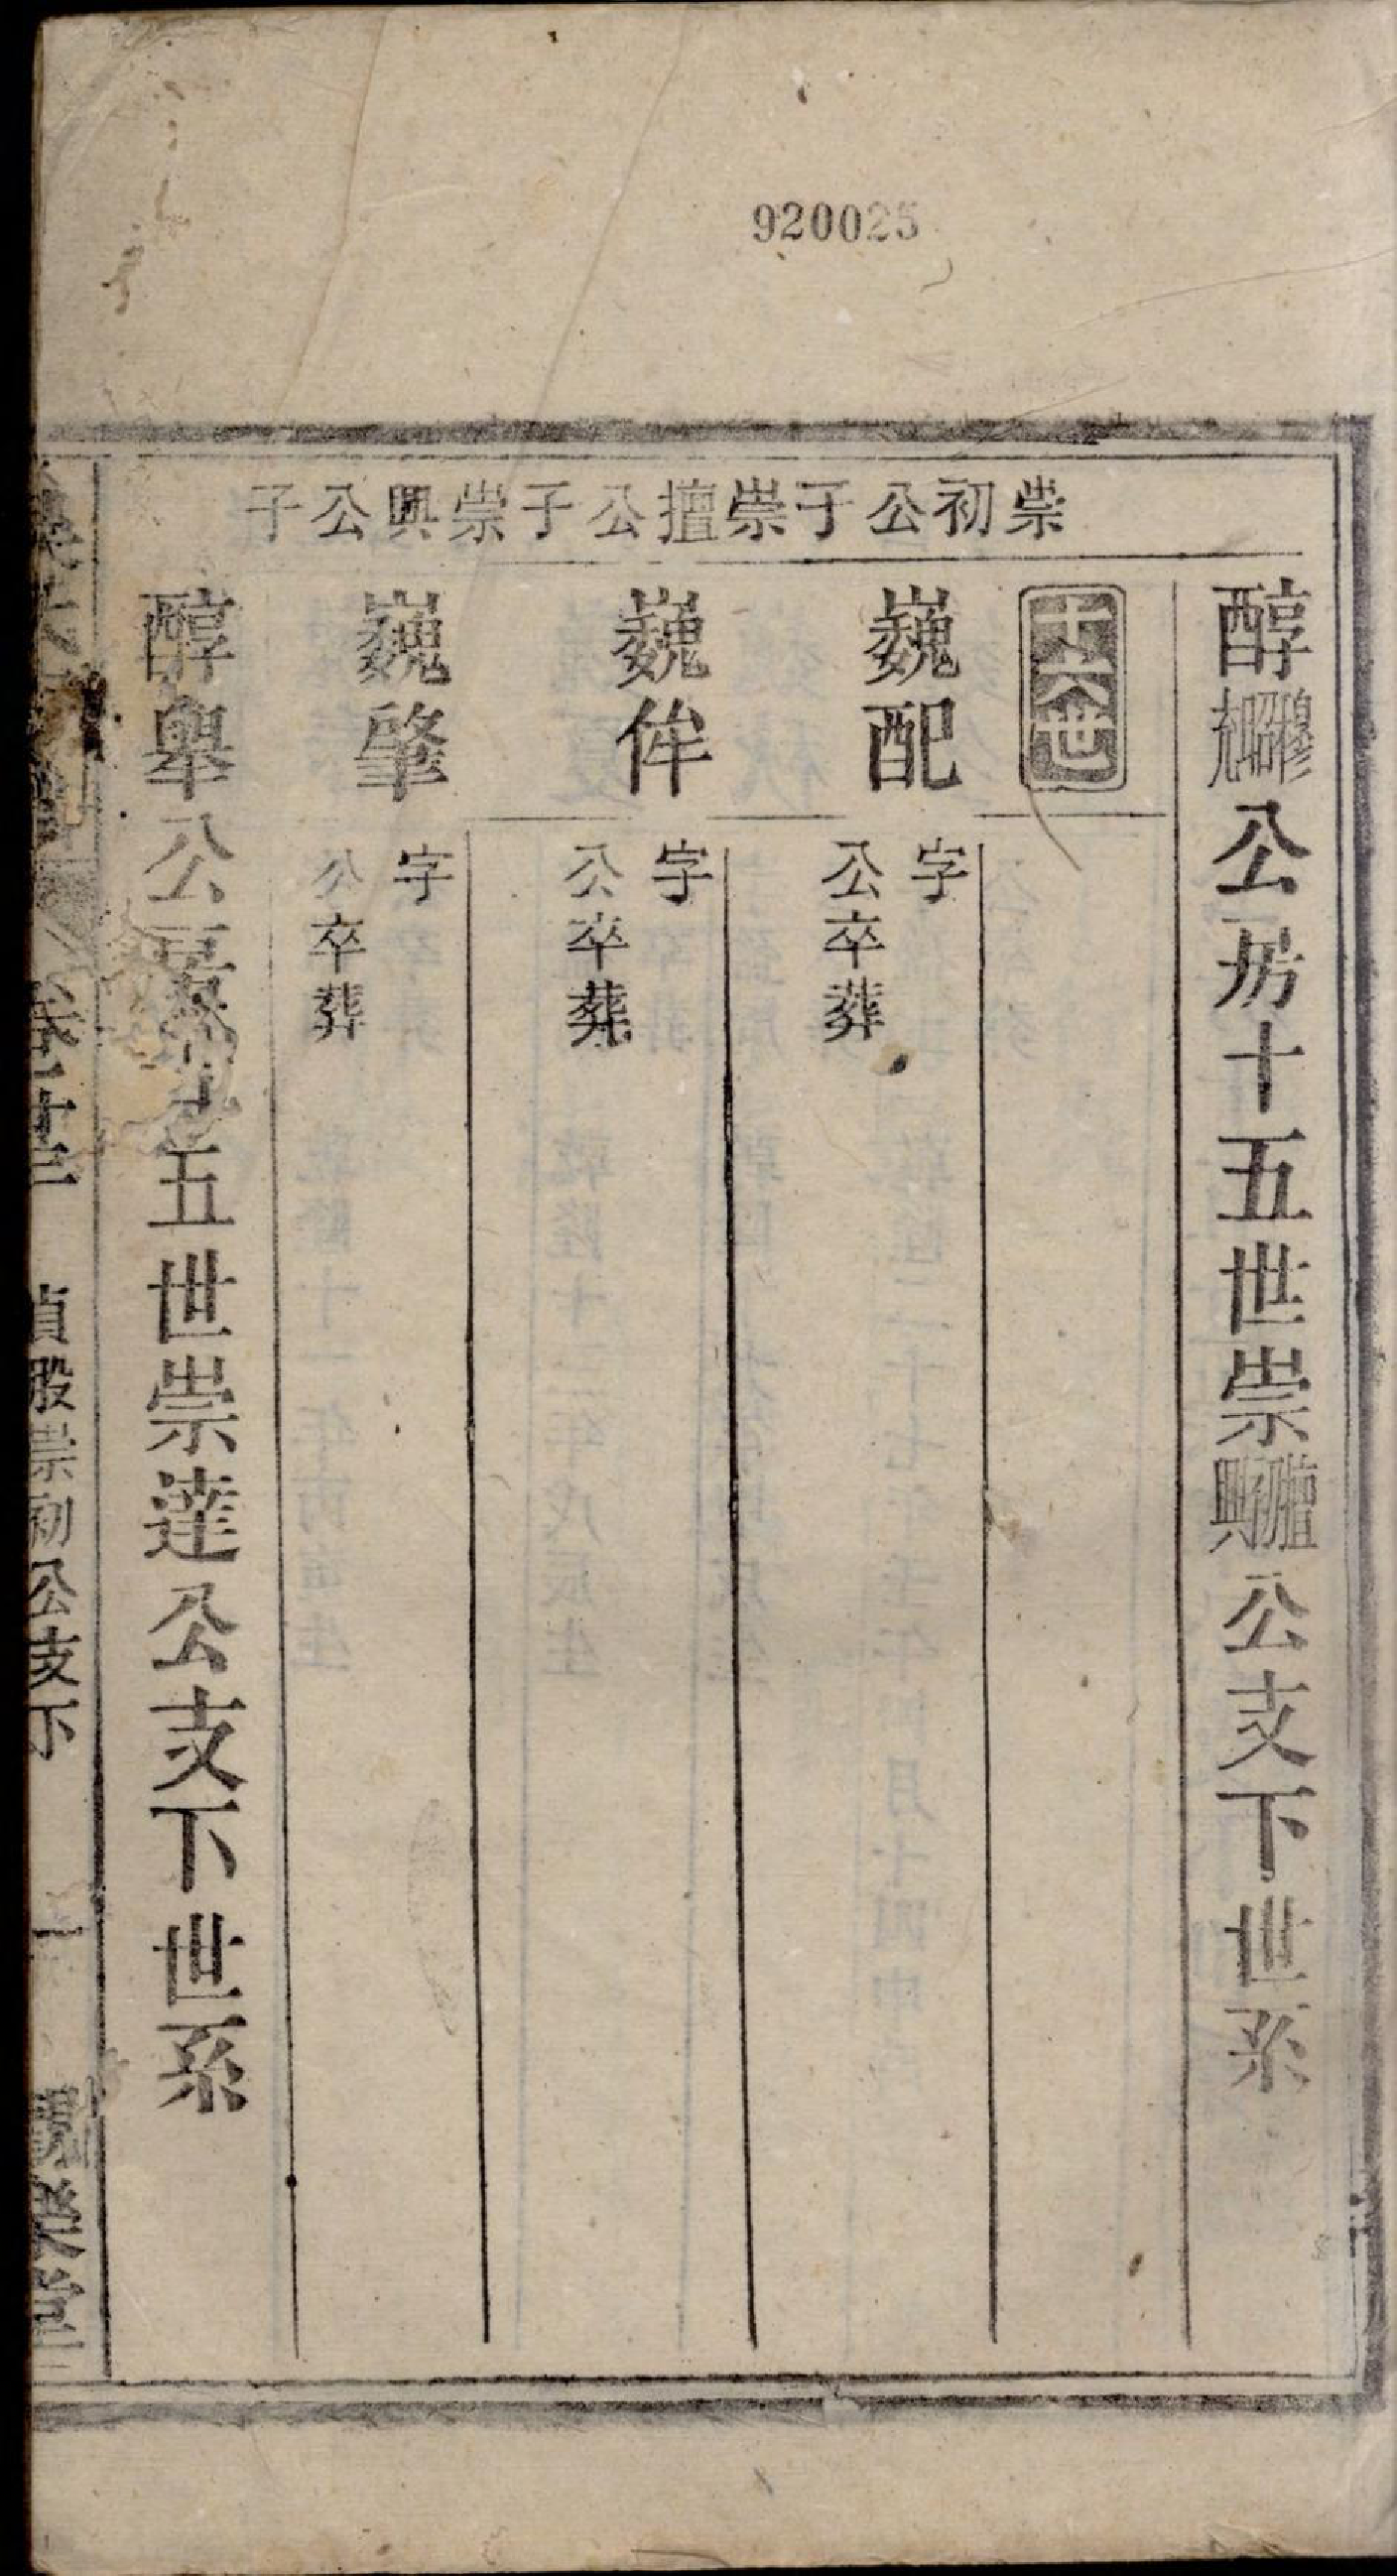 920025
崇初公子崇擅公子崇興公子
醇穆昭尭公房十五世崇初擅興公支下世系
十六世
巍配
字
公卒葬
巍侔
字
公卒葬
巍肇
字
公卒葬
醇舉公房十五世崇達公支下世系
卷十三
貞股崇初公支下
一